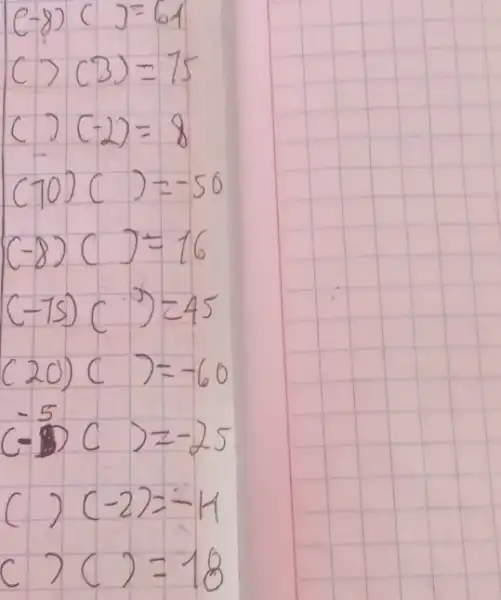 (-8) ( ) = 64
( ) (3) = 15
( ) (-2) = 8
(10) ( ) = -50
(-8) ( ) = 16
(-15) ( ) = 45
(20) ( ) = -60
(-5) ( ) = -25
( ) (-2) = -14
( ) ( ) = 18